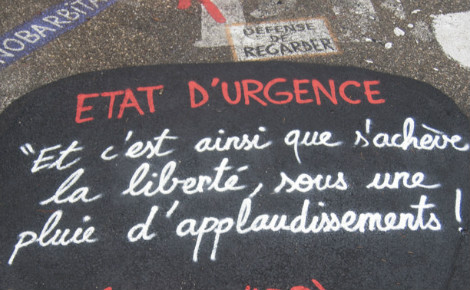 NOBARBITA
DEFENSE
DE
REGARDER
ETAT D'URGENCE
"Et c'est ainsi que s'achève
la liberté, sous une
pluie d'applaudissements !